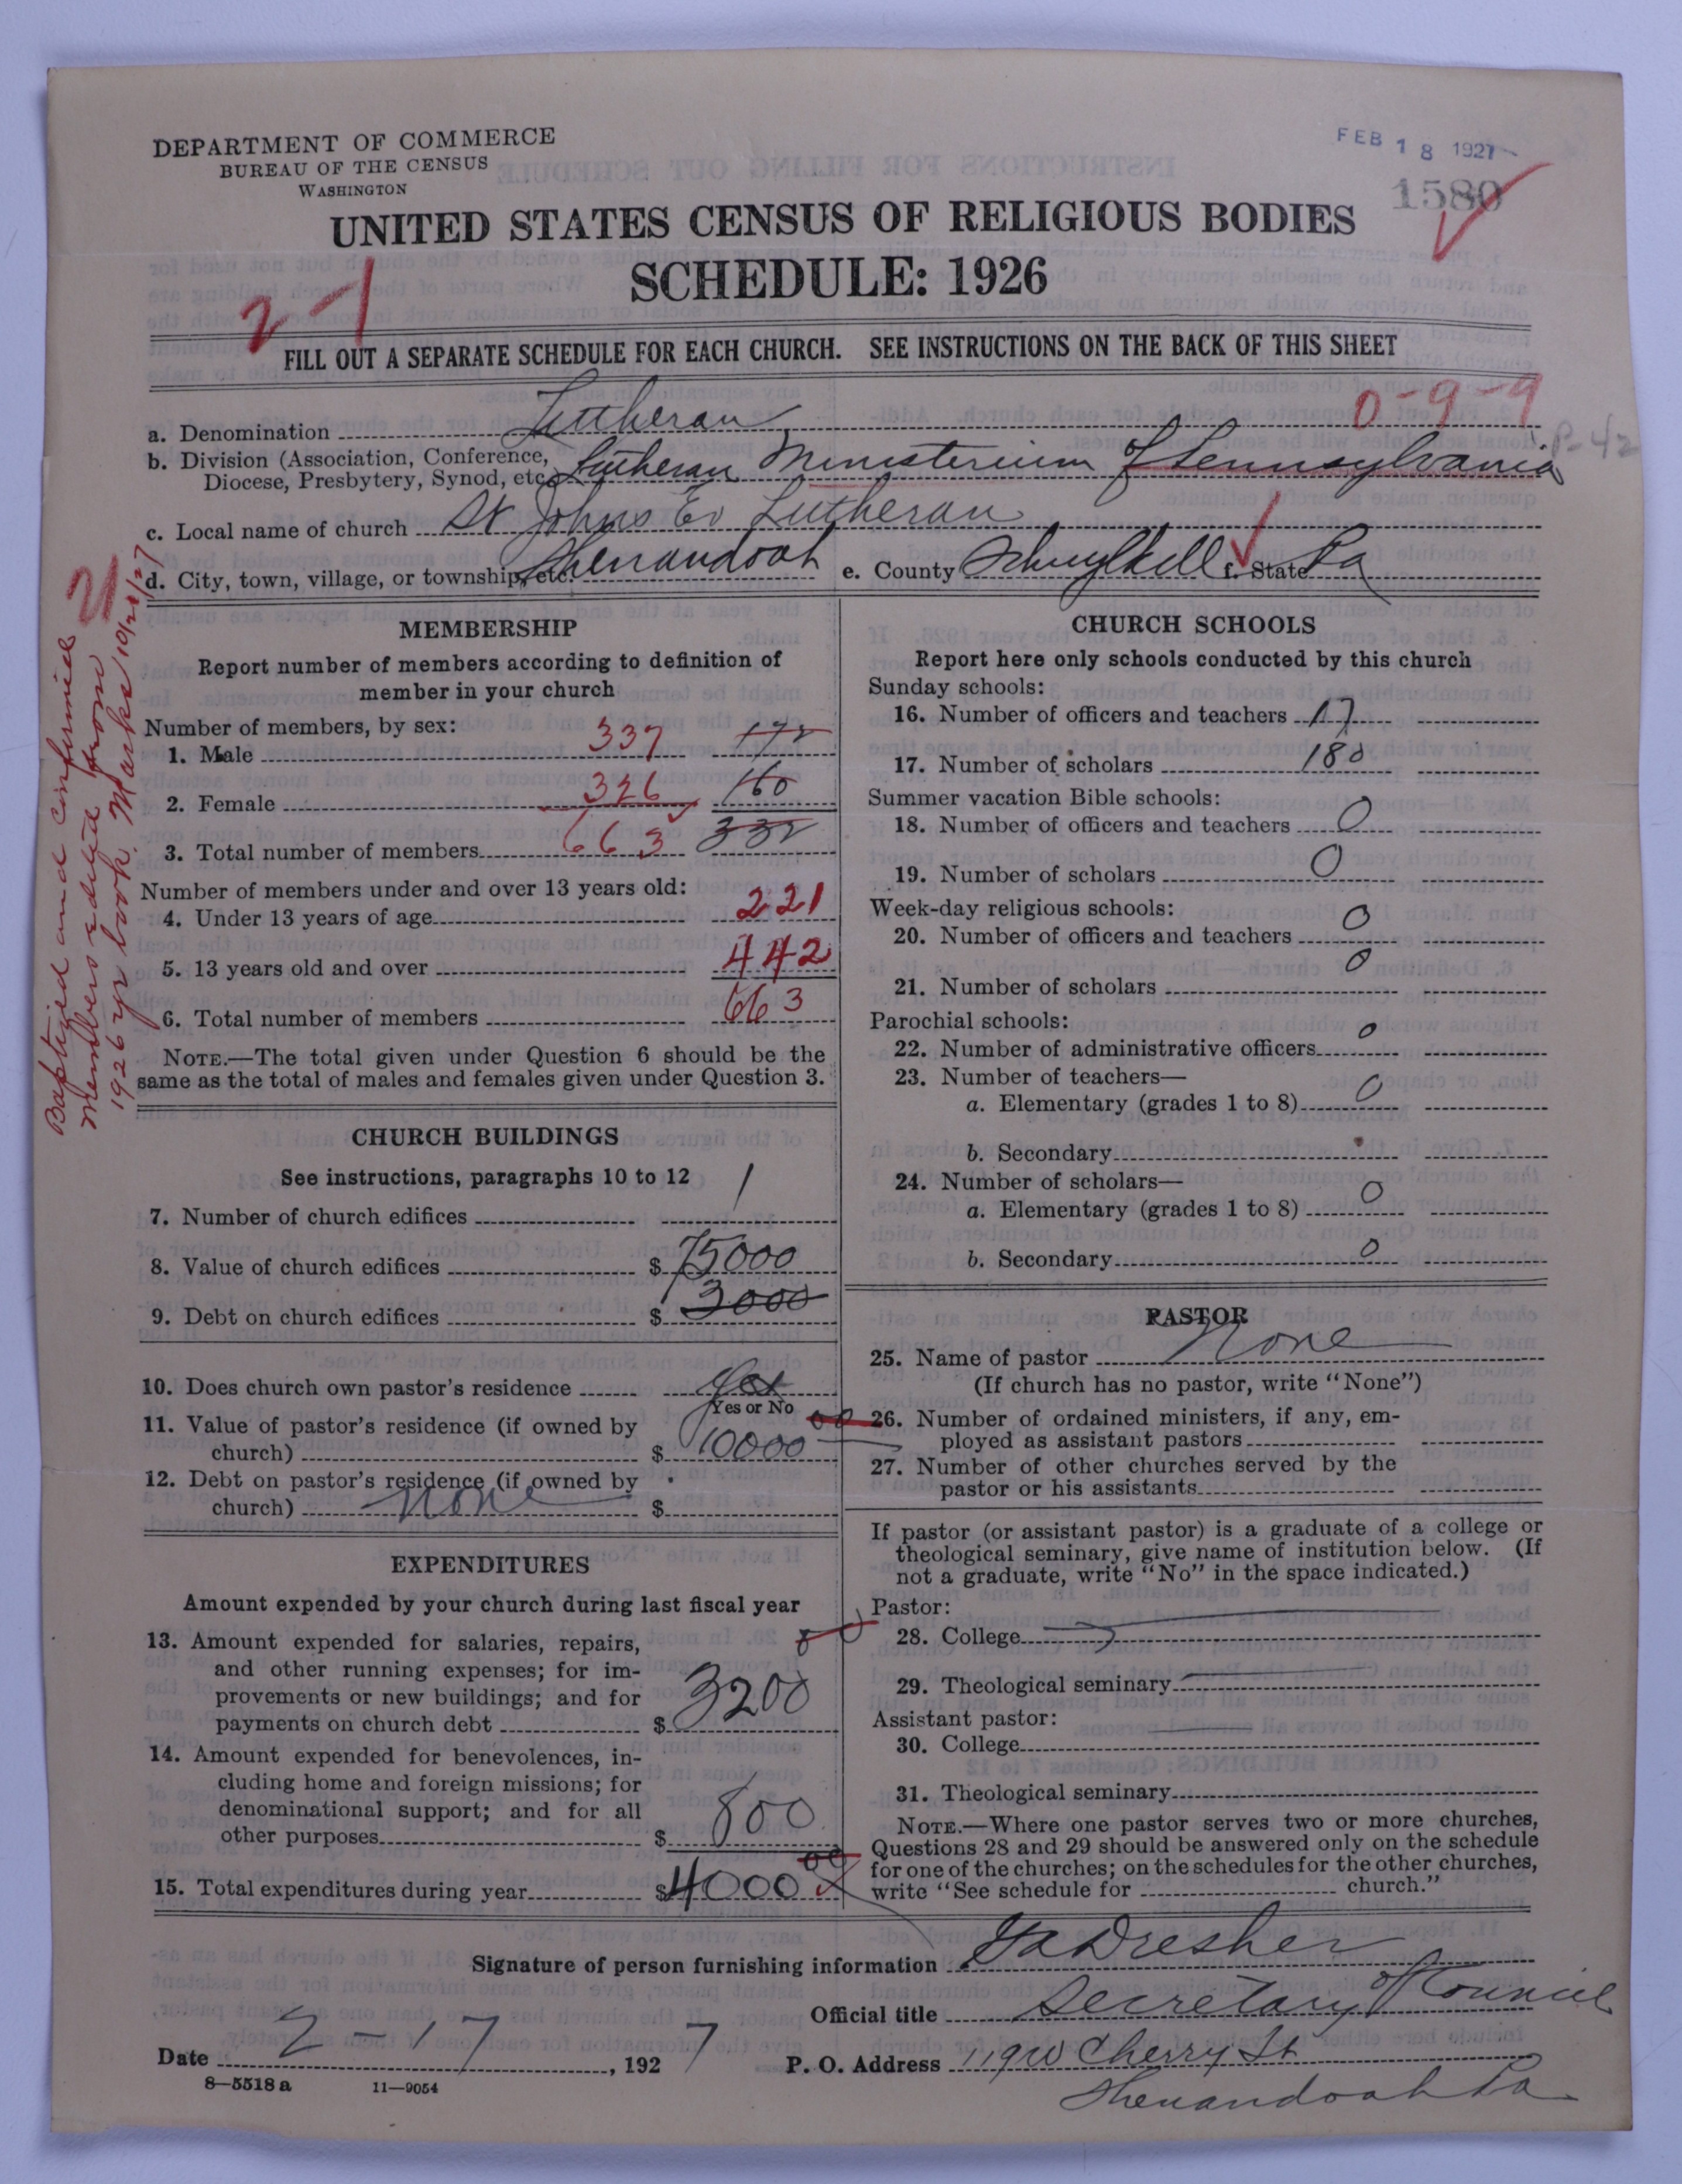 DEPARTMENT OF COMMERCE
BUREAU OF THE CENSUS
WASHINGTON
FEB 18 1927
1580
UNITED STATES CENSUS OF RELIGIOUS BODIES
SCHEDULE: 1926
2-1
FILL OUT A SEPARATE SCHEDULE FOR EACH CHURCH. SEE INSTRUCTIONS ON THE BACK OF THIS SHEET
0-9-9
a. Denomination Lutheran
P-42
b. Division (Association, Conference, Diocese, Presbytery, Synod, etc.) Lutheran Ministerium of Pennsylvania
c. Local name of church St Johns Ev Lutheran
d. City, town, village, or township, etc. Shenandoah e. County Schuylkill f. State Pa
Baptized and confirmed
members edited from
1926 yr book. Marks 10/21/27
MEMBERSHIP
Report number of members according to definition of
member in your church
Number of members, by sex:
1. Male 337 172
2. Female 326 160
3. Total number of members 663 332
Number of members under and over 13 years old:
4. Under 13 years of age 221
5. 13 years old and over 442
6. Total number of members 663
NOTE.—The total given under Question 6 should be the
same as the total of males and females given under Question 3.
CHURCH BUILDINGS
See instructions, paragraphs 10 to 12
7. Number of church edifices 1
8. Value of church edifices $ 75000
9. Debt on church edifices $ 3000
10. Does church own pastor's residence Yes
Yes or No
11. Value of pastor's residence (if owned by
church) $ 10000 00
12. Debt on pastor's residence (if owned by
church) none $
EXPENDITURES
Amount expended by your church during last fiscal year
13. Amount expended for salaries, repairs,
and other running expenses; for im-
provements or new buildings; and for
payments on church debt $ 3200
14. Amount expended for benevolences, in-
cluding home and foreign missions; for
denominational support; and for all
other purposes $ 800
15. Total expenditures during year $ 4000 00
CHURCH SCHOOLS
Report here only schools conducted by this church
Sunday schools:
16. Number of officers and teachers 17
17. Number of scholars 180
Summer vacation Bible schools:
18. Number of officers and teachers 0
19. Number of scholars 0
Week-day religious schools:
20. Number of officers and teachers 0
21. Number of scholars 0
Parochial schools:
22. Number of administrative officers 0
23. Number of teachers—
a. Elementary (grades 1 to 8) 0
b. Secondary
24. Number of scholars—
a. Elementary (grades 1 to 8) 0
b. Secondary 0
PASTOR
25. Name of pastor None
(If church has no pastor, write "None")
26. Number of ordained ministers, if any, em-
ployed as assistant pastors
27. Number of other churches served by the
pastor or his assistants
If pastor (or assistant pastor) is a graduate of a college or
theological seminary, give name of institution below. (If
not a graduate, write "No" in the space indicated.)
Pastor:
28. College
29. Theological seminary
Assistant pastor:
30. College
31. Theological seminary
NOTE.—Where one pastor serves two or more churches,
Questions 28 and 29 should be answered only on the schedule
for one of the churches; on the schedules for the other churches,
write "See schedule for church."
Signature of person furnishing information Dresher
Official title Secretary of Council
Date 2-17, 1927 P. O. Address 119 W Cherry St
Shenandoah Pa
8—5518 a 11—9054